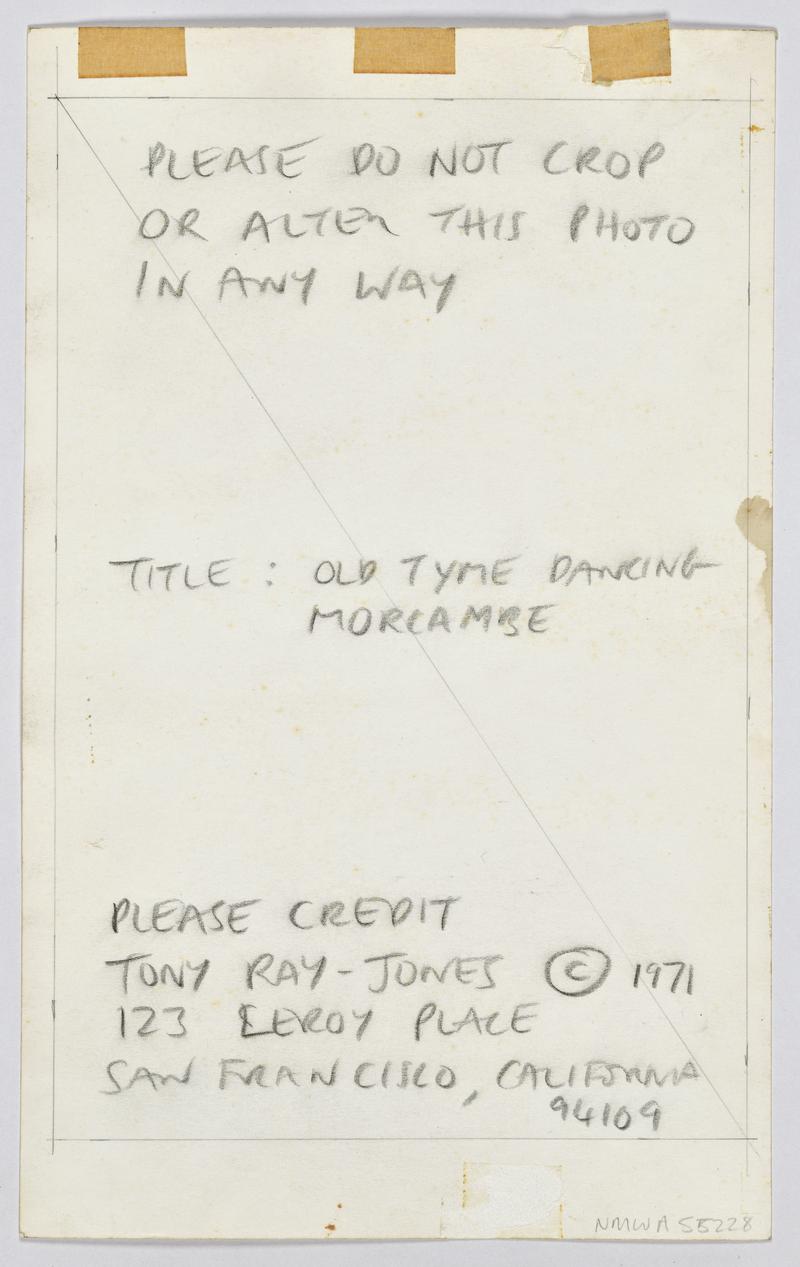 PLEASE DO NOT CROP
OR ALTER THIS PHOTO
IN ANY WAY
TITLE : OLD TYME DANCING
MORCAMBE
PLEASE CREDIT
TONY RAY-JONES © 1971
123 LEROY PLACE
SAN FRANCISCO, CALIFORNIA
94109
NMWA 55228